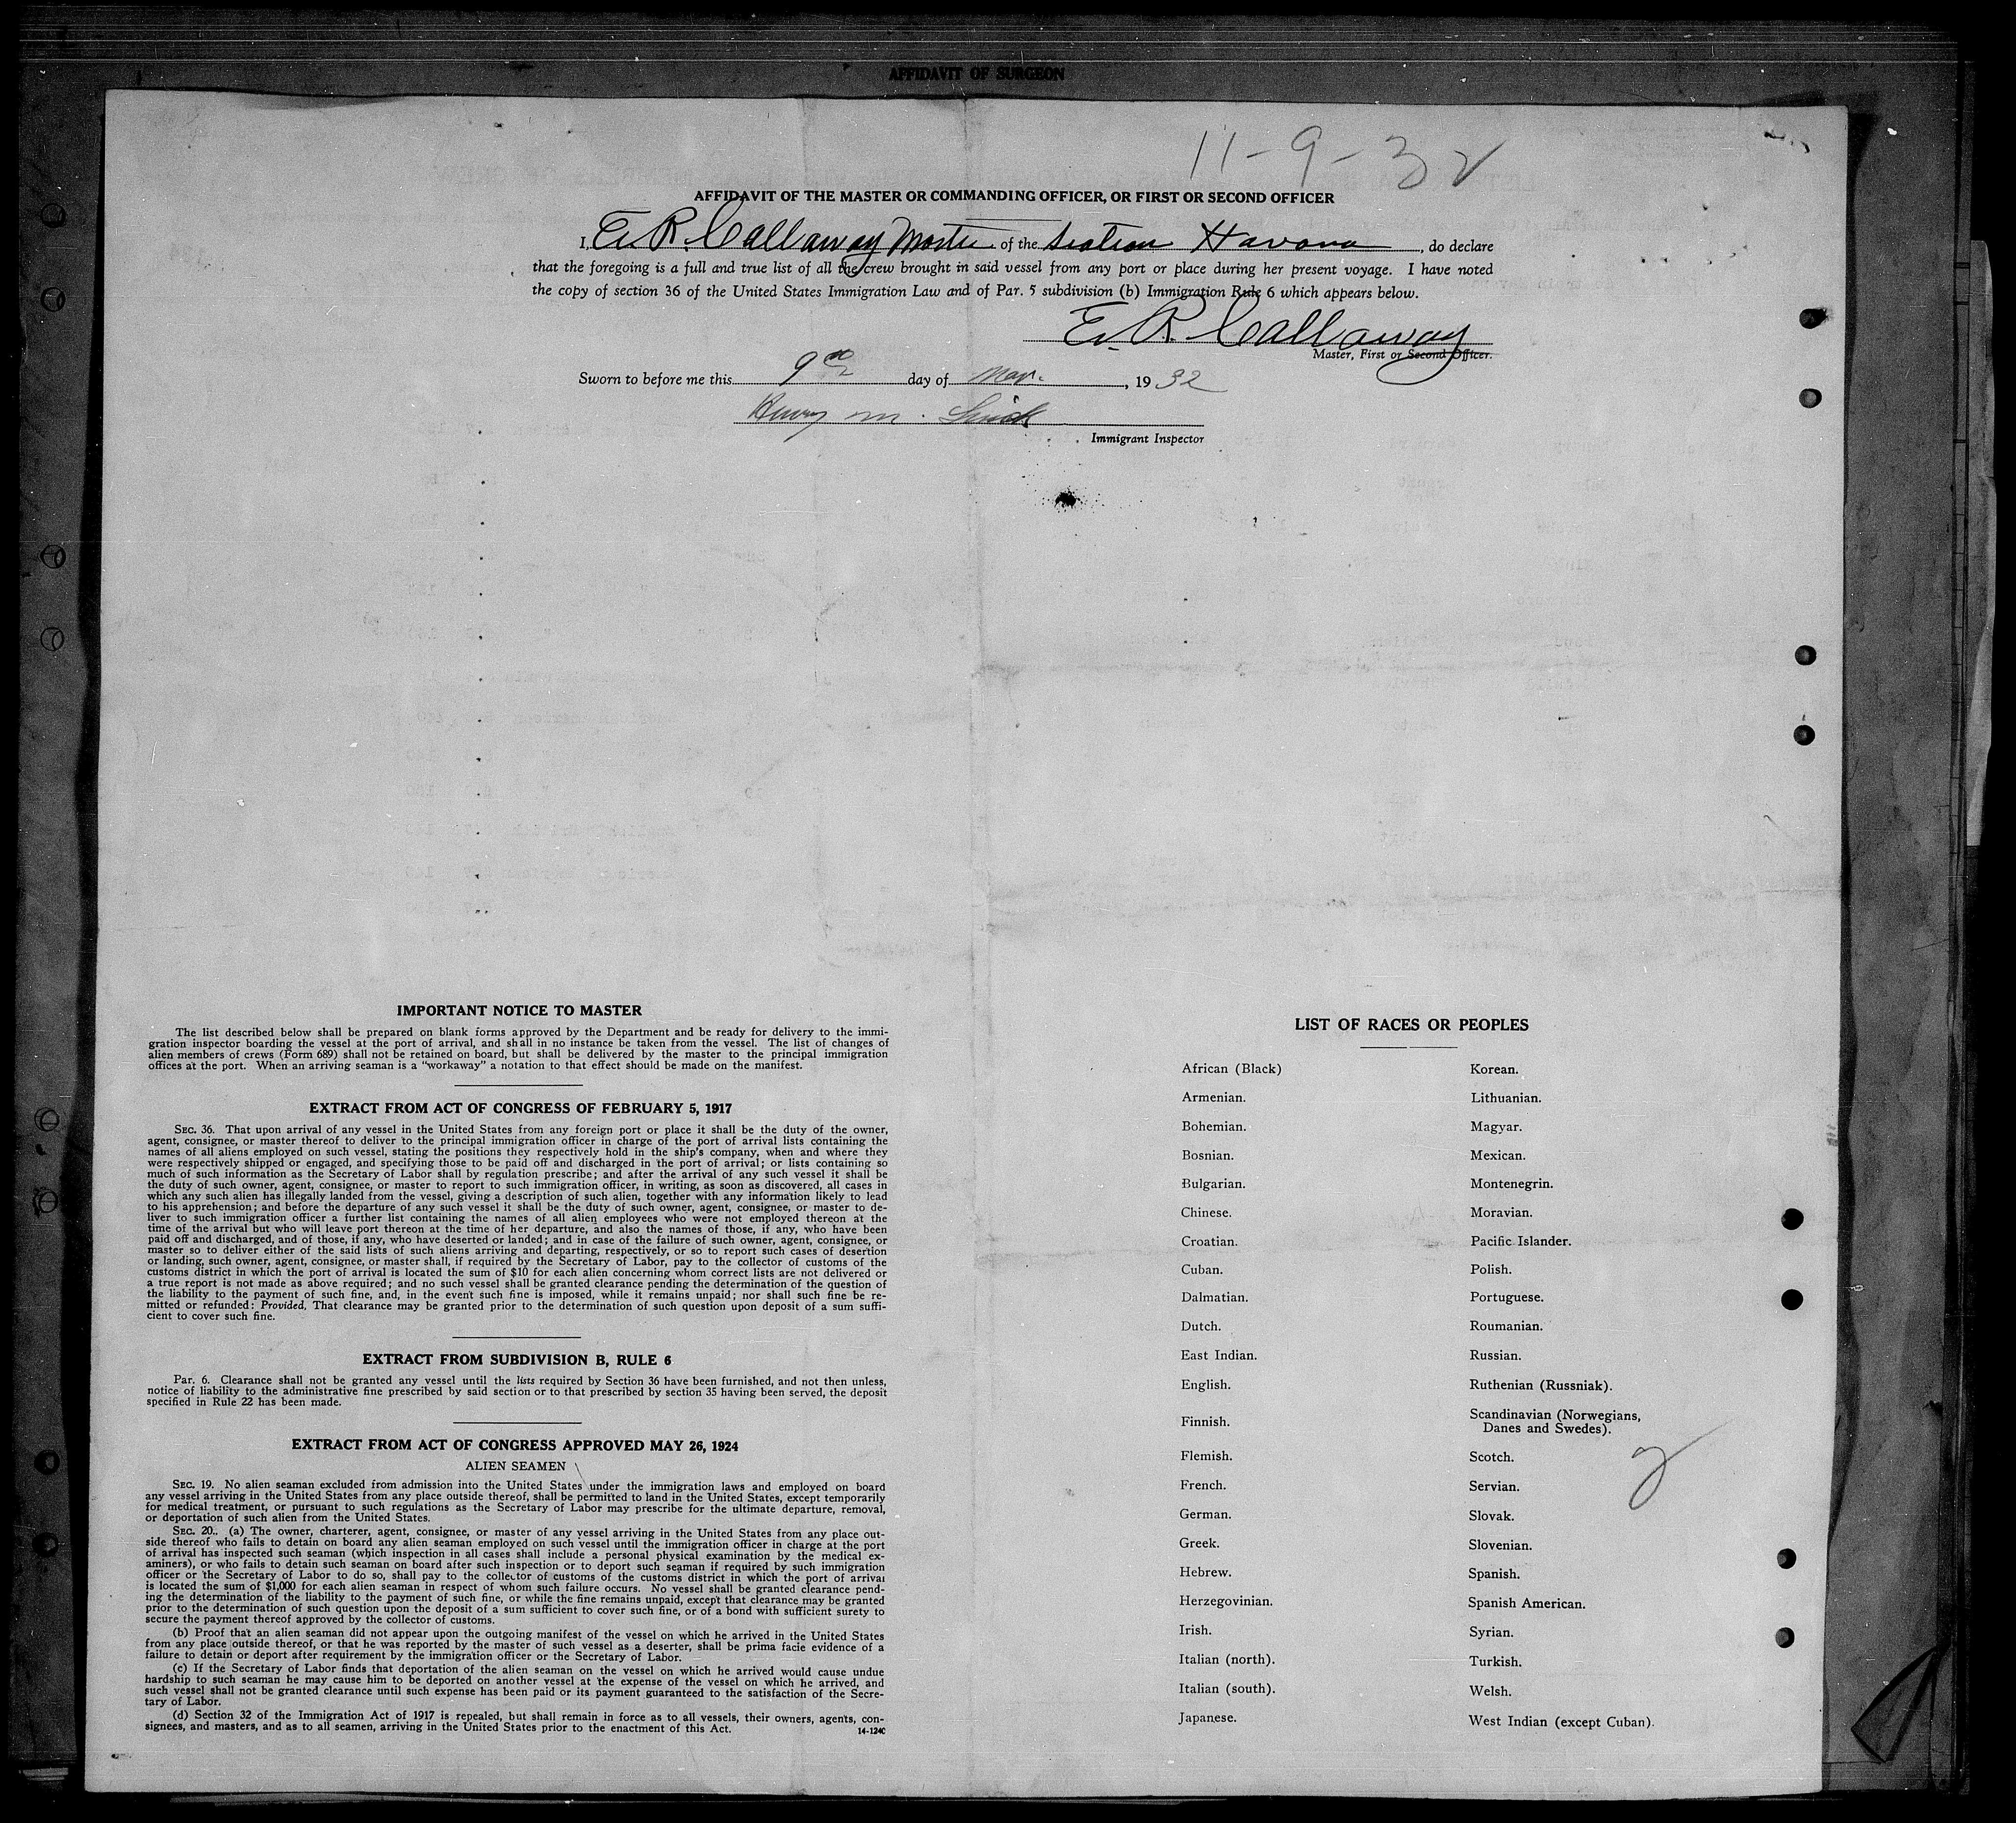 AFFIDAVIT OF SURGEON
11-9-32
AFFIDAVIT OF THE MASTER OR COMMANDING OFFICER, OR FIRST OR SECOND OFFICER
I, E. R. Callaway Master of the Seatrain Havana, do declare
that the foregoing is a full and true list of all the crew brought in said vessel from any port or place during her present voyage. I have noted
the copy of section 36 of the United States Immigration Law and of Par. 5 subdivision (b) Immigration Rule 6 which appears below.
E. R. Callaway
Master, First or Second Officer.
Sworn to before me this 9 day of Nov., 1932
Henry M.
Immigrant Inspector
IMPORTANT NOTICE TO MASTER
The list described below shall be prepared on blank forms approved by the Department and be ready for delivery to the immi-
gration inspector boarding the vessel at the port of arrival, and shall in no instance be taken from the vessel. The list of changes of
alien members of crews (Form 689) shall not be retained on board, but shall be delivered by the master to the principal immigration
offices at the port. When an arriving seaman is a "workaway" a notation to that effect should be made on the manifest.
EXTRACT FROM ACT OF CONGRESS OF FEBRUARY 5, 1917
SEC. 36. That upon arrival of any vessel in the United States from any foreign port or place it shall be the duty of the owner,
agent, consignee, or master thereof to deliver to the principal immigration officer in charge of the port of arrival lists containing the
names of all aliens employed on such vessel, stating the positions they respectively hold in the ship's company, when and where they
were respectively shipped or engaged, and specifying those to be paid off and discharged in the port of arrival; or lists containing so
much of such information as the Secretary of Labor shall by regulation prescribe; and after the arrival of any such vessel it shall be
the duty of such owner, agent, consignee, or master to report to such immigration officer, in writing, as soon as discovered, all cases in
which any such alien has illegally landed from the vessel, giving a description of such alien, together with any information likely to lead
to his apprehension; and before the departure of any such vessel it shall be the duty of such owner, agent, consignee, or master to de-
liver to such immigration officer a further list containing the names of all alien employees who were not employed thereon at the
time of the arrival but who will leave port thereon at the time of her departure, and also the names of those, if any, who have been
paid off and discharged, and of those, if any, who have deserted or landed; and in case of the failure of such owner, agent, consignee, or
master so to deliver either of the said lists of such aliens arriving and departing, respectively, or so to report such cases of desertion
or landing, such owner, agent, consignee, or master shall, if required by the Secretary of Labor, pay to the collector of customs of the
customs district in which the port of arrival is located the sum of $10 for each alien concerning whom correct lists are not delivered or
a true report is not made as above required; and no such vessel shall be granted clearance pending the determination of the question of
the liability to the payment of such fine, and, in the event such fine is imposed, while it remains unpaid; nor shall such fine be re-
mitted or refunded: Provided, That clearance may be granted prior to the determination of such question upon deposit of a sum suffi-
cient to cover such fine.
EXTRACT FROM SUBDIVISION B, RULE 6
Par. 6. Clearance shall not be granted any vessel until the lists required by Section 36 have been furnished, and not then unless,
notice of liability to the administrative fine prescribed by said section or to that prescribed by section 35 having been served, the deposit
specified in Rule 22 has been made.
EXTRACT FROM ACT OF CONGRESS APPROVED MAY 26, 1924
ALIEN SEAMEN
SEC. 19. No alien seaman excluded from admission into the United States under the immigration laws and employed on board
any vessel arriving in the United States from any place outside thereof, shall be permitted to land in the United States, except temporarily
for medical treatment, or pursuant to such regulations as the Secretary of Labor may prescribe for the ultimate departure, removal,
or deportation of such alien from the United States.
SEC. 20.. (a) The owner, charterer, agent, consignee, or master of any vessel arriving in the United States from any place out-
side thereof who fails to detain on board any alien seaman employed on such vessel until the immigration officer in charge at the port
of arrival has inspected such seaman (which inspection in all cases shall include a personal physical examination by the medical ex-
aminers), or who fails to detain such seaman on board after such inspection or to deport such seaman if required by such immigration
officer or the Secretary of Labor to do so, shall pay to the collector of customs of the customs district in which the port of arrival
is located the sum of $1,000 for each alien seaman in respect of whom such failure occurs. No vessel shall be granted clearance pend-
ing the determination of the liability to the payment of such fine, or while the fine remains unpaid, except that clearance may be granted
prior to the determination of such question upon the deposit of a sum sufficient to cover such fine, or of a bond with sufficient surety to
secure the payment thereof approved by the collector of customs.
(b) Proof that an alien seaman did not appear upon the outgoing manifest of the vessel on which he arrived in the United States
from any place outside thereof, or that he was reported by the master of such vessel as a deserter, shall be prima facie evidence of a
failure to detain or deport after requirement by the immigration officer or the Secretary of Labor.
(c) If the Secretary of Labor finds that deportation of the alien seaman on the vessel on which he arrived would cause undue
hardship to such seaman he may cause him to be deported on another vessel at the expense of the vessel on which he arrived, and
such vessel shall not be granted clearance until such expense has been paid or its payment guaranteed to the satisfaction of the Secre-
tary of Labor.
(d) Section 32 of the Immigration Act of 1917 is repealed, but shall remain in force as to all vessels, their owners, agents, con-
signees, and masters, and as to all seamen, arriving in the United States prior to the enactment of this Act.
14-124C
LIST OF RACES OR PEOPLES
African (Black)
Armenian.
Bohemian.
Bosnian.
Bulgarian.
Chinese.
Croatian.
Cuban.
Dalmatian.
Dutch.
East Indian.
English.
Finnish.
Flemish.
French.
German.
Greek.
Hebrew.
Herzegovinian.
Irish.
Italian (north).
Italian (south).
Japanese.
Korean.
Lithuanian.
Magyar.
Mexican.
Montenegrin.
Moravian.
Pacific Islander.
Polish.
Portuguese.
Roumanian.
Russian.
Ruthenian (Russniak).
Scandinavian (Norwegians,
Danes and Swedes).
Scotch.
Servian.
Slovak.
Slovenian.
Spanish.
Spanish American.
Syrian.
Turkish.
Welsh.
West Indian (except Cuban).